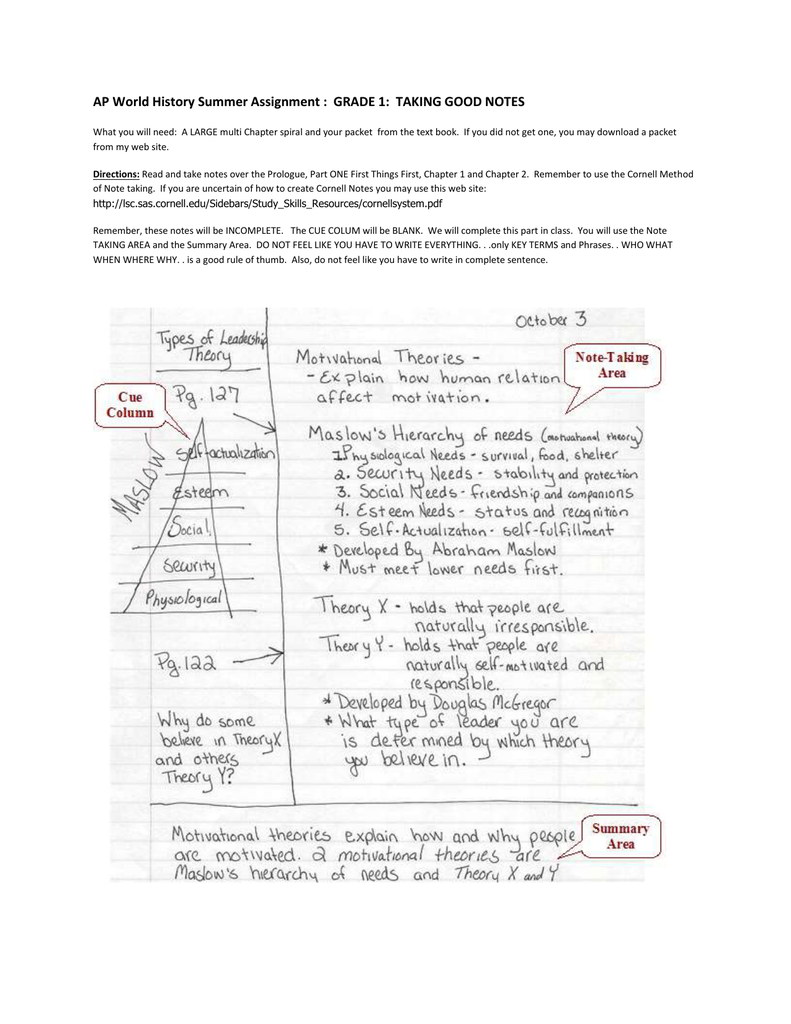 AP World History Summer Assignment : GRADE 1: TAKING GOOD NOTES
What you will need: A LARGE multi Chapter spiral and your packet from the text book. If you did not get one, you may download a packet
from my web site.
Directions: Read and take notes over the Prologue, Part ONE First Things First, Chapter 1 and Chapter 2. Remember to use the Cornell Method
of Note taking. If you are uncertain of how to create Cornell Notes you may use this web site:
http://lsc.sas.cornell.edu/Sidebars/Study_Skills_Resources/cornellsystem.pdf
Remember, these notes will be INCOMPLETE. The CUE COLUM will be BLANK. We will complete this part in class. You will use the Note
TAKING AREA and the Summary Area. DO NOT FEEL LIKE YOU HAVE TO WRITE EVERYTHING. . .only KEY TERMS and Phrases. . WHO WHAT
WHEN WHERE WHY. . is a good rule of thumb. Also, do not feel like you have to write in complete sentence.
October 3
Types of Leadership
Theory
Pg. 127
Cue
Column
MASLOW
Self-actualization
Esteem
Social
Security
Physiological
Pg. 122
Why do some
believe in Theory X
and others
Theory Y?
Motivational Theories -
- Explain how human relation
affect motivation.
Note-Taking
Area
Maslow's Hierarchy of needs (motivational theory)
1. Physiological Needs - survival, food, shelter
2. Security Needs - stability and protection
3. Social Needs - friendship and companions
4. Esteem Needs - status and recognition
5. Self-Actualization - self-fulfillment
* Developed By Abraham Maslow
* Must meet lower needs first.
Theory X - holds that people are
naturally irresponsible.
Theory Y - holds that people are
naturally self-motivated and
responsible.
* Developed by Douglas McGregor
* What type of leader you are
is determined by which theory
you believe in.
Motivational theories explain how and why people
are motivated. 2 motivational theories are
Maslow's hierarchy of needs and Theory X and Y
Summary
Area